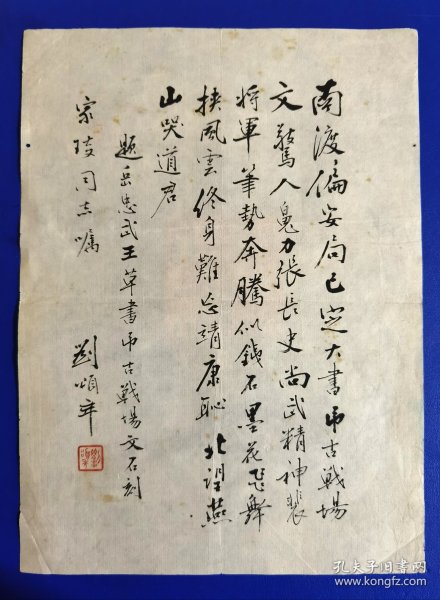 南渡偏安局已定大書弔古戰場
文驚人魄力張長史尚武精神裴
將軍筆勢奔騰似鐵石墨花飛舞
挾風雲終身難忘靖康恥北望燕
山哭道君
題岳忠武王草書弔古戰場文石刻
同志囑
劉頌年
孔夫子旧书网
www.kongfz.com